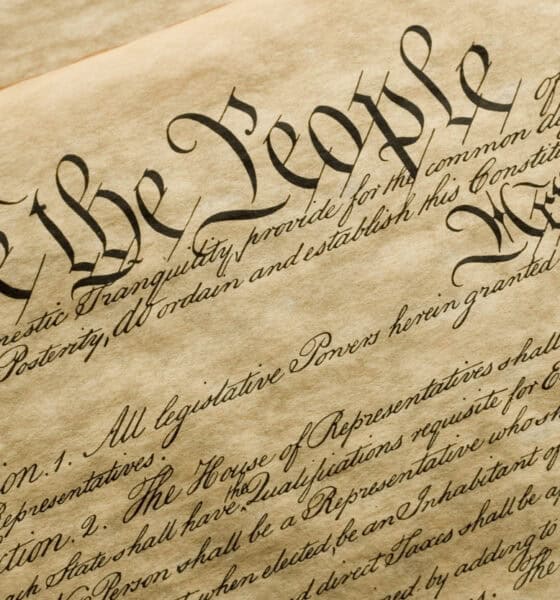 e the People of
mestic Tranquility, provide for the common de
Posterity, do ordain and establish this Constit
ion. 1. All legislative Powers herein granted
Representatives.
ction. 2. The House of Representatives shall
ach State shall have the Qualifications requisite for E
No Person shall be a Representative who sh
t when elected, be an Inhabitant of
d direct Taxes shall be a
ned, by adding to
The